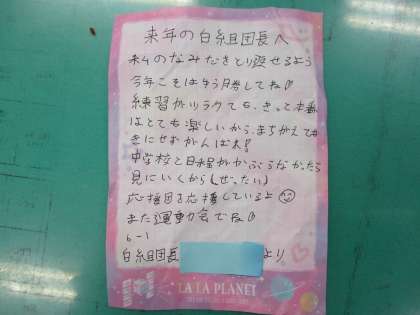 来年の白組団長へ
私のなみだをとり返せるよう
今年こそは優勝してね
練習がツラクても、きっと本番
はとても楽しいから、まちがえても
きにせずがんばれ!
中学校と日程がかぶらなかったら
見にいくから(ぜったい)
応援団を応援しているよ
また運動会でね
6-1
白組団長 より
LA LA PLANET